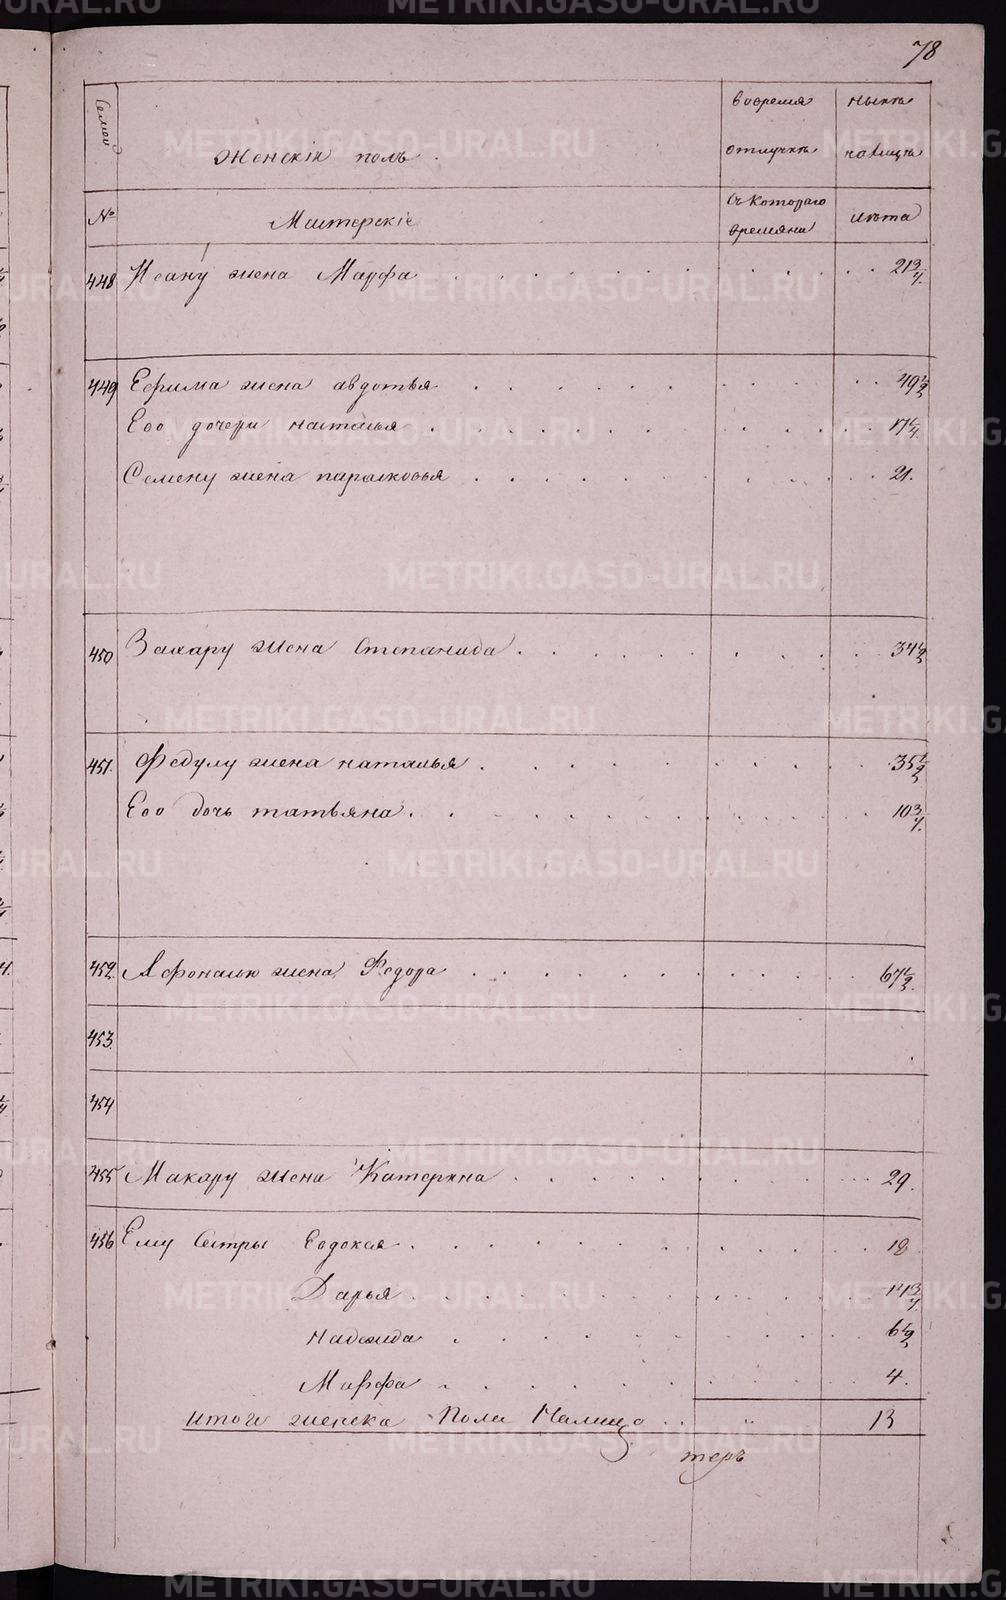 78
Семей
Женскій полъ
вовремя
отлучкѣ
нынѣ
налицѣ
№
Мастерскіе
съ Котораго
времяни
лѣта
448 Ивану жена Марфа 21 3/4
449 Ефима жена авдотья 49 1/2
Его дочери наталья 17 1/4
Семену жена парасковья 21.
450 Захару жена Степанида 34 1/2
451 Федулу жена наталья 35 1/2
Его дочь татьяна 10 3/4
452 Афонасью жена Федора 67 1/2
453
454
455 Макару жена Катерина 29.
456 Ему Сестры Евдокея 18
Дарья 14 3/4
надежда 6 1/2
Марфа 4.
итого женска Пола Налицо 13
METRIKI.GASO-URAL.RU